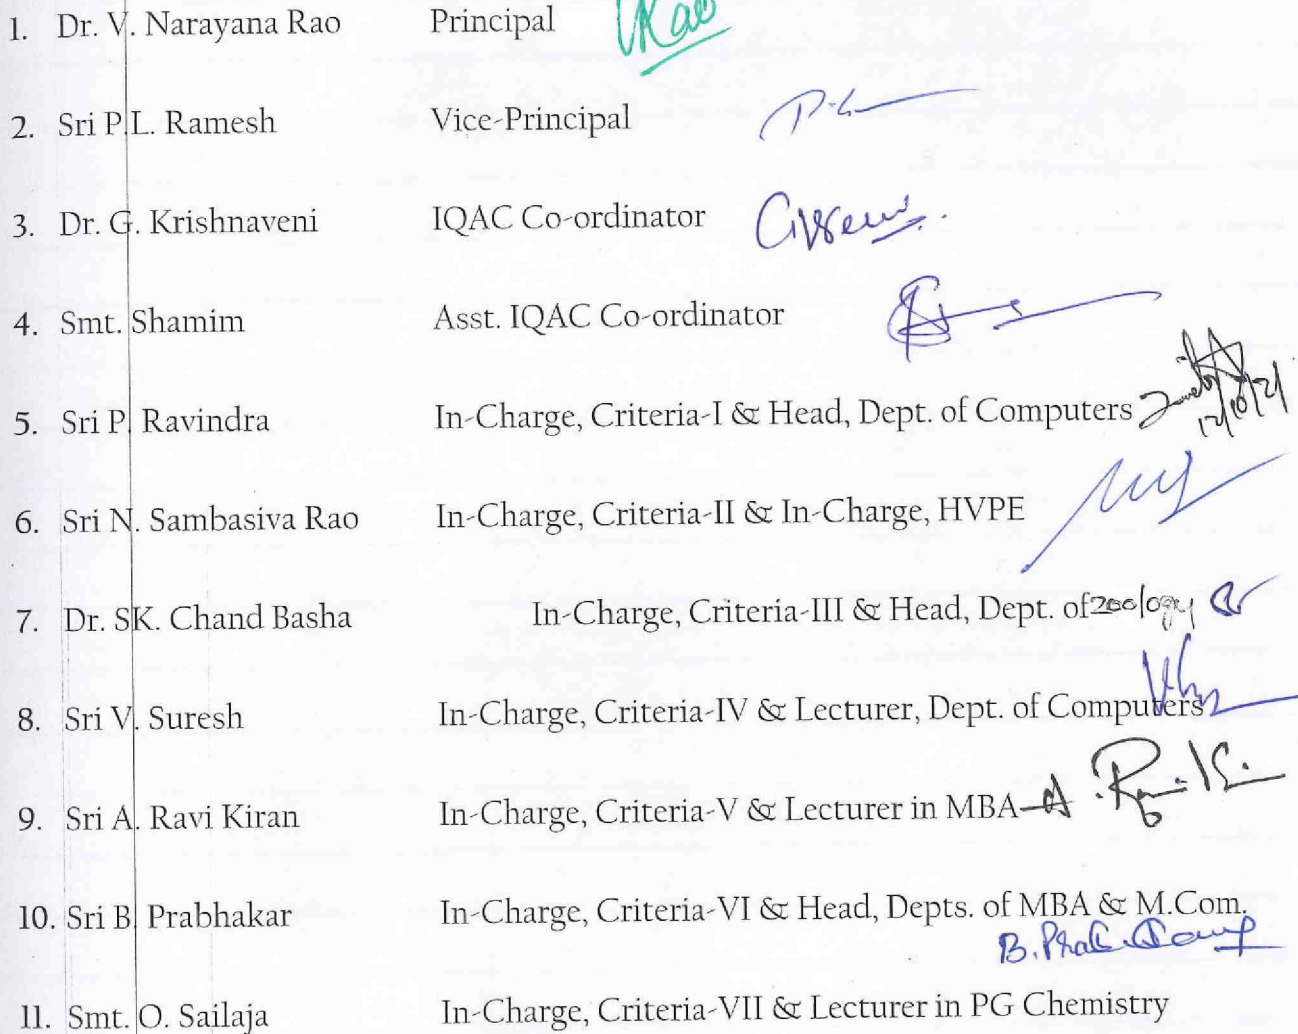 1. Dr. V. Narayana Rao Principal VRao
2. Sri P.L. Ramesh Vice-Principal
3. Dr. G. Krishnaveni IQAC Co-ordinator
4. Smt. Shamim Asst. IQAC Co-ordinator
5. Sri P. Ravindra In-Charge, Criteria-I & Head, Dept. of Computers 12/10/21
6. Sri N. Sambasiva Rao In-Charge, Criteria-II & In-Charge, HVPE
7. Dr. SK. Chand Basha In-Charge, Criteria-III & Head, Dept. of Zoology
8. Sri V. Suresh In-Charge, Criteria-IV & Lecturer, Dept. of Computers
9. Sri A. Ravi Kiran In-Charge, Criteria-V & Lecturer in MBA
10. Sri B. Prabhakar In-Charge, Criteria-VI & Head, Depts. of MBA & M.Com.
11. Smt. O. Sailaja In-Charge, Criteria-VII & Lecturer in PG Chemistry